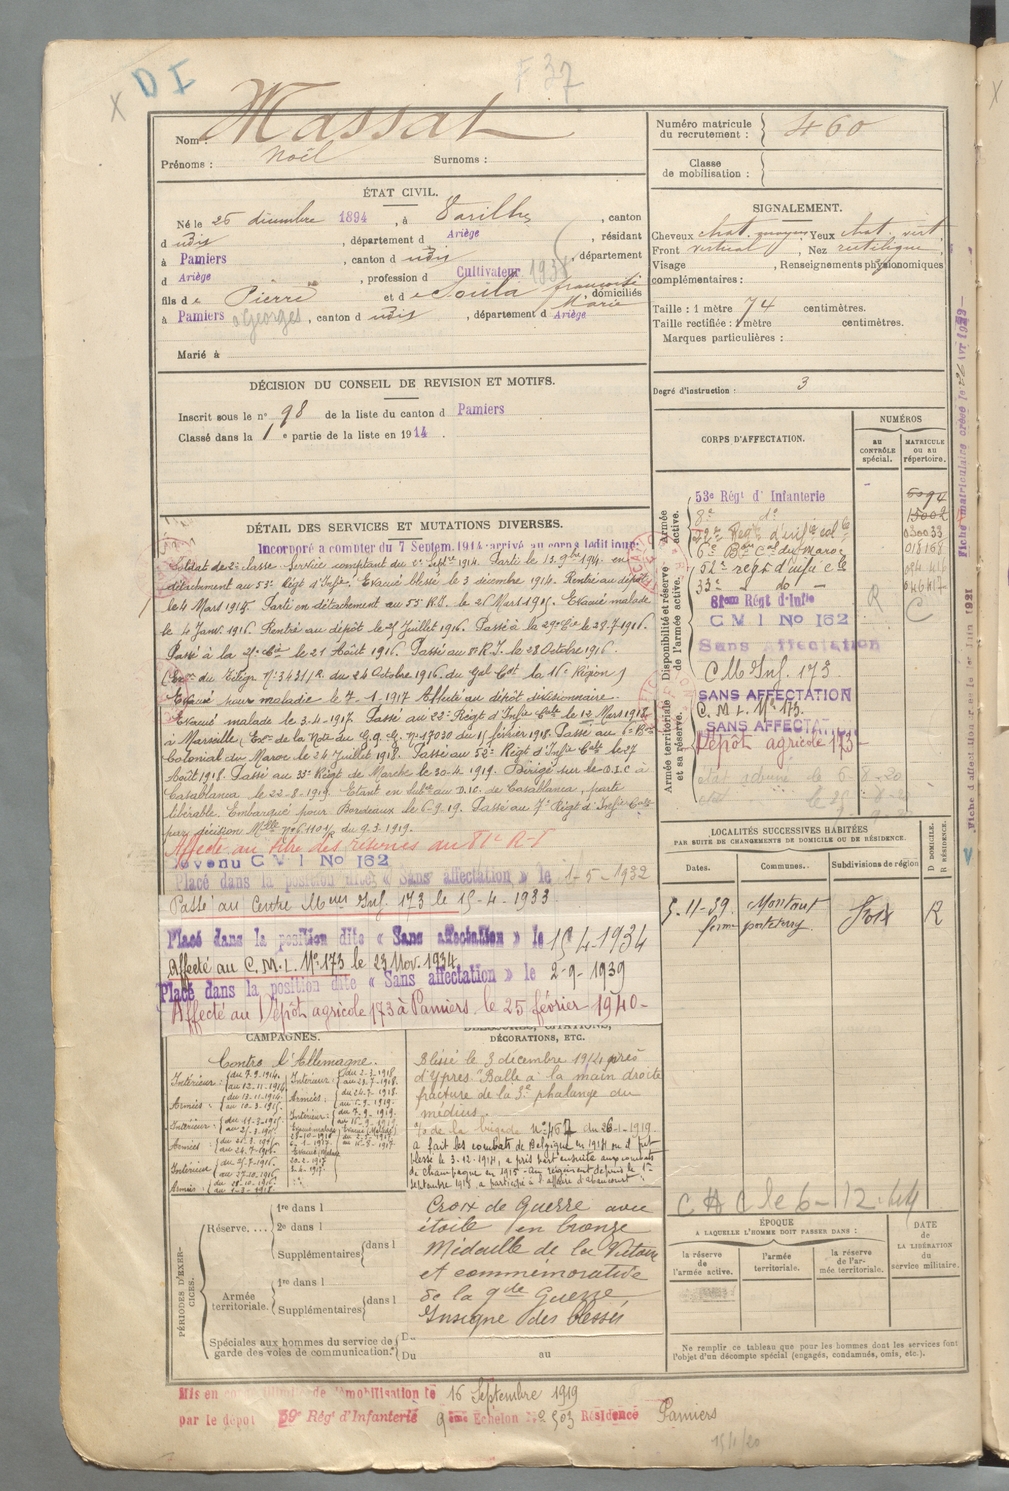 D I
F 37
Nom : Massat
Prénoms : Noël Surnoms :
Numéro matricule du recrutement : 460
Classe de mobilisation :
ÉTAT CIVIL.
Né le 25 décembre 1894, à Varilhes, canton
d udit, département d Ariège, résidant
à Pamiers, canton d udit, département
d Ariège, profession d Cultivateur 1938
fils de Pierre et de Soula françoise Marie domiciliés
à Pamiers Georges, canton d udit, département d Ariège
Marié à
SIGNALEMENT.
Cheveux chat. moyen, Yeux chat. vert
Front vertical, Nez rectiligne,
Visage , Renseignements physionomiques
complémentaires :
Taille : 1 mètre 74 centimètres.
Taille rectifiée : 1 mètre centimètres.
Marques particulières :
Degré d'instruction : 3
DÉCISION DU CONSEIL DE REVISION ET MOTIFS.
Inscrit sous le n° 98 de la liste du canton d Pamiers
Classé dans la 1e partie de la liste en 1914.
CORPS D'AFFECTATION.
NUMÉROS
AU CONTRÔLE spécial.
MATRICULE OU AU répertoire.
Armée active.
Disponibilité et réserve de l'armée active.
Armée territoriale et sa réserve.
53e Régt d'Infanterie
8e do 15002
22e Régt d'infie colle 030033
6e Bon Cal du Maroc 018168
52e regt d'infie cle
33e do
81eme Régt d'Infie R C
C M I No 162
Sans Affectation
C M Inf. 173
SANS AFFECTATION
C. M. L. No 173.
SANS AFFECTAT...
Dépôt agricole 173
DÉTAIL DES SERVICES ET MUTATIONS DIVERSES.
Incorporé a compter du 7 Septem. 1914 arrivé au corps ledit jour
Soldat de 2e classe. Service comptant du 1er Septre 1914. Parti le 13 9bre 1914 en
détachement au 53e Régt d'Infie. Evacué blessé le 3 décembre 1914. Rentré au dépôt
le 4 Mars 1915. Parti en détachement au 53e R.I. le 26 Mars 1915. Evacué malade
le 4 Janv. 1916. Rentré au dépôt le 25 Juillet 1916. Passé à la 29e Cie le 28-7-1916.
Passé à la 27e Cie le 21 Août 1916. Passé au 8e R.I. le 28 Octobre 1916.
(Exon du Télégr. No 3431/R du 24 Octobre 1916 du Gal Cdt la 16e Région)
Evacué pour maladie le 7-1-1917 Affecté au dépôt divisionnaire.
Evacué malade le 3-4-1917. Passé au 22e Régt d'Infie Colle le 12 Mars 1918
à Marseille, Exon de la Note du G.Q.G. no 17030 du 15 février 1918. Passé au 6e Bon
Colonial du Maroc le 24 Juillet 1918. Passé au 52e Régt d'Infie Colle le 27
Août 1918. Passé au 33e Régt de Marche le 30-4-1919. Dirigé sur le D.I.C à
Casablanca le 22-8-1919. Etant en subce au D.I.C. de Casablanca, parti
libérable. Embarqué pour Bordeaux le 6-9-19. Passé au 7e Régt d'Infie Colle
par décision Mlle no du 9.3.1919.
Affecté au titre des réserves au 81e R-I
devenu C M I No 162
Placé dans la position dite « Sans affectation » le 1-5-1932
Passé au Centre Meur Inf. 173 le 15-4-1933
Placé dans la position dite « Sans affectation » le 15 4-1934
Affecté au C.M.L. No 173 le 23 Nov. 1934
Placé dans la position dite « Sans affectation » le 2-9-1939
Affecté au Dépôt agricole 173 à Pamiers le 25 février 1940-
LOCALITÉS SUCCESSIVES HABITÉES
PAR SUITE DE CHANGEMENTS DE DOMICILE OU DE RÉSIDENCE.
Dates.
Communes.
Subdivisions de région
D DOMICILE.
R RÉSIDENCE.
5-11-39. Montaut Foix R
CAMPAGNES.
Contre l'Allemagne.
Intérieur : du 7-9-1914. au 12-11-1914
Armées : du 13-11-1914. au 10-3-1915.
Intérieur : du 11-3-1915. au 25-3-1915.
DÉCORATIONS, ETC.
Blessé le 3 décembre 1914 près
d'Ypres "Balle à la main droite
fracture de la 3e phalange du
médius.
de la brigade no 467 du 26-1-1919.
a fait les combats de Belgique en 1914 où il fut
blessé le 3-12-1914, a pris part ensuite aux combats
de Champagne en 1915 - Au régiment depuis le 1er
septembre 1918 a participé à l'affaire d'
Croix de Guerre avec
étoile en bronze
Médaille de la Victoire
et commémorative
de la gde Guerre,
Insigne des blessés
C A C le 6-12-44
PÉRIODES D'EXERCICES.
Réserve.... 1re dans l
2e dans l
Supplémentaires dans l
Armée territoriale. 1re dans l
Supplémentaires dans l
Spéciales aux hommes du service de garde des voies de communication. Du
Du au
ÉPOQUE
A LAQUELLE L'HOMME DOIT PASSER DANS :
la réserve de l'armée active.
l'armée territoriale.
la réserve de l'armée territoriale.
DATE de LA LIBÉRATION du service militaire.
Ne remplir ce tableau que pour les hommes dont les services font
l'objet d'un décompte spécial (engagés, condamnés, omis, etc.).
Mis en congé illimité de démobilisation le 16 Septembre 1919
par le dépôt 59e Régt d'Infanterie 9ème Echelon No 503 Résidence Pamiers